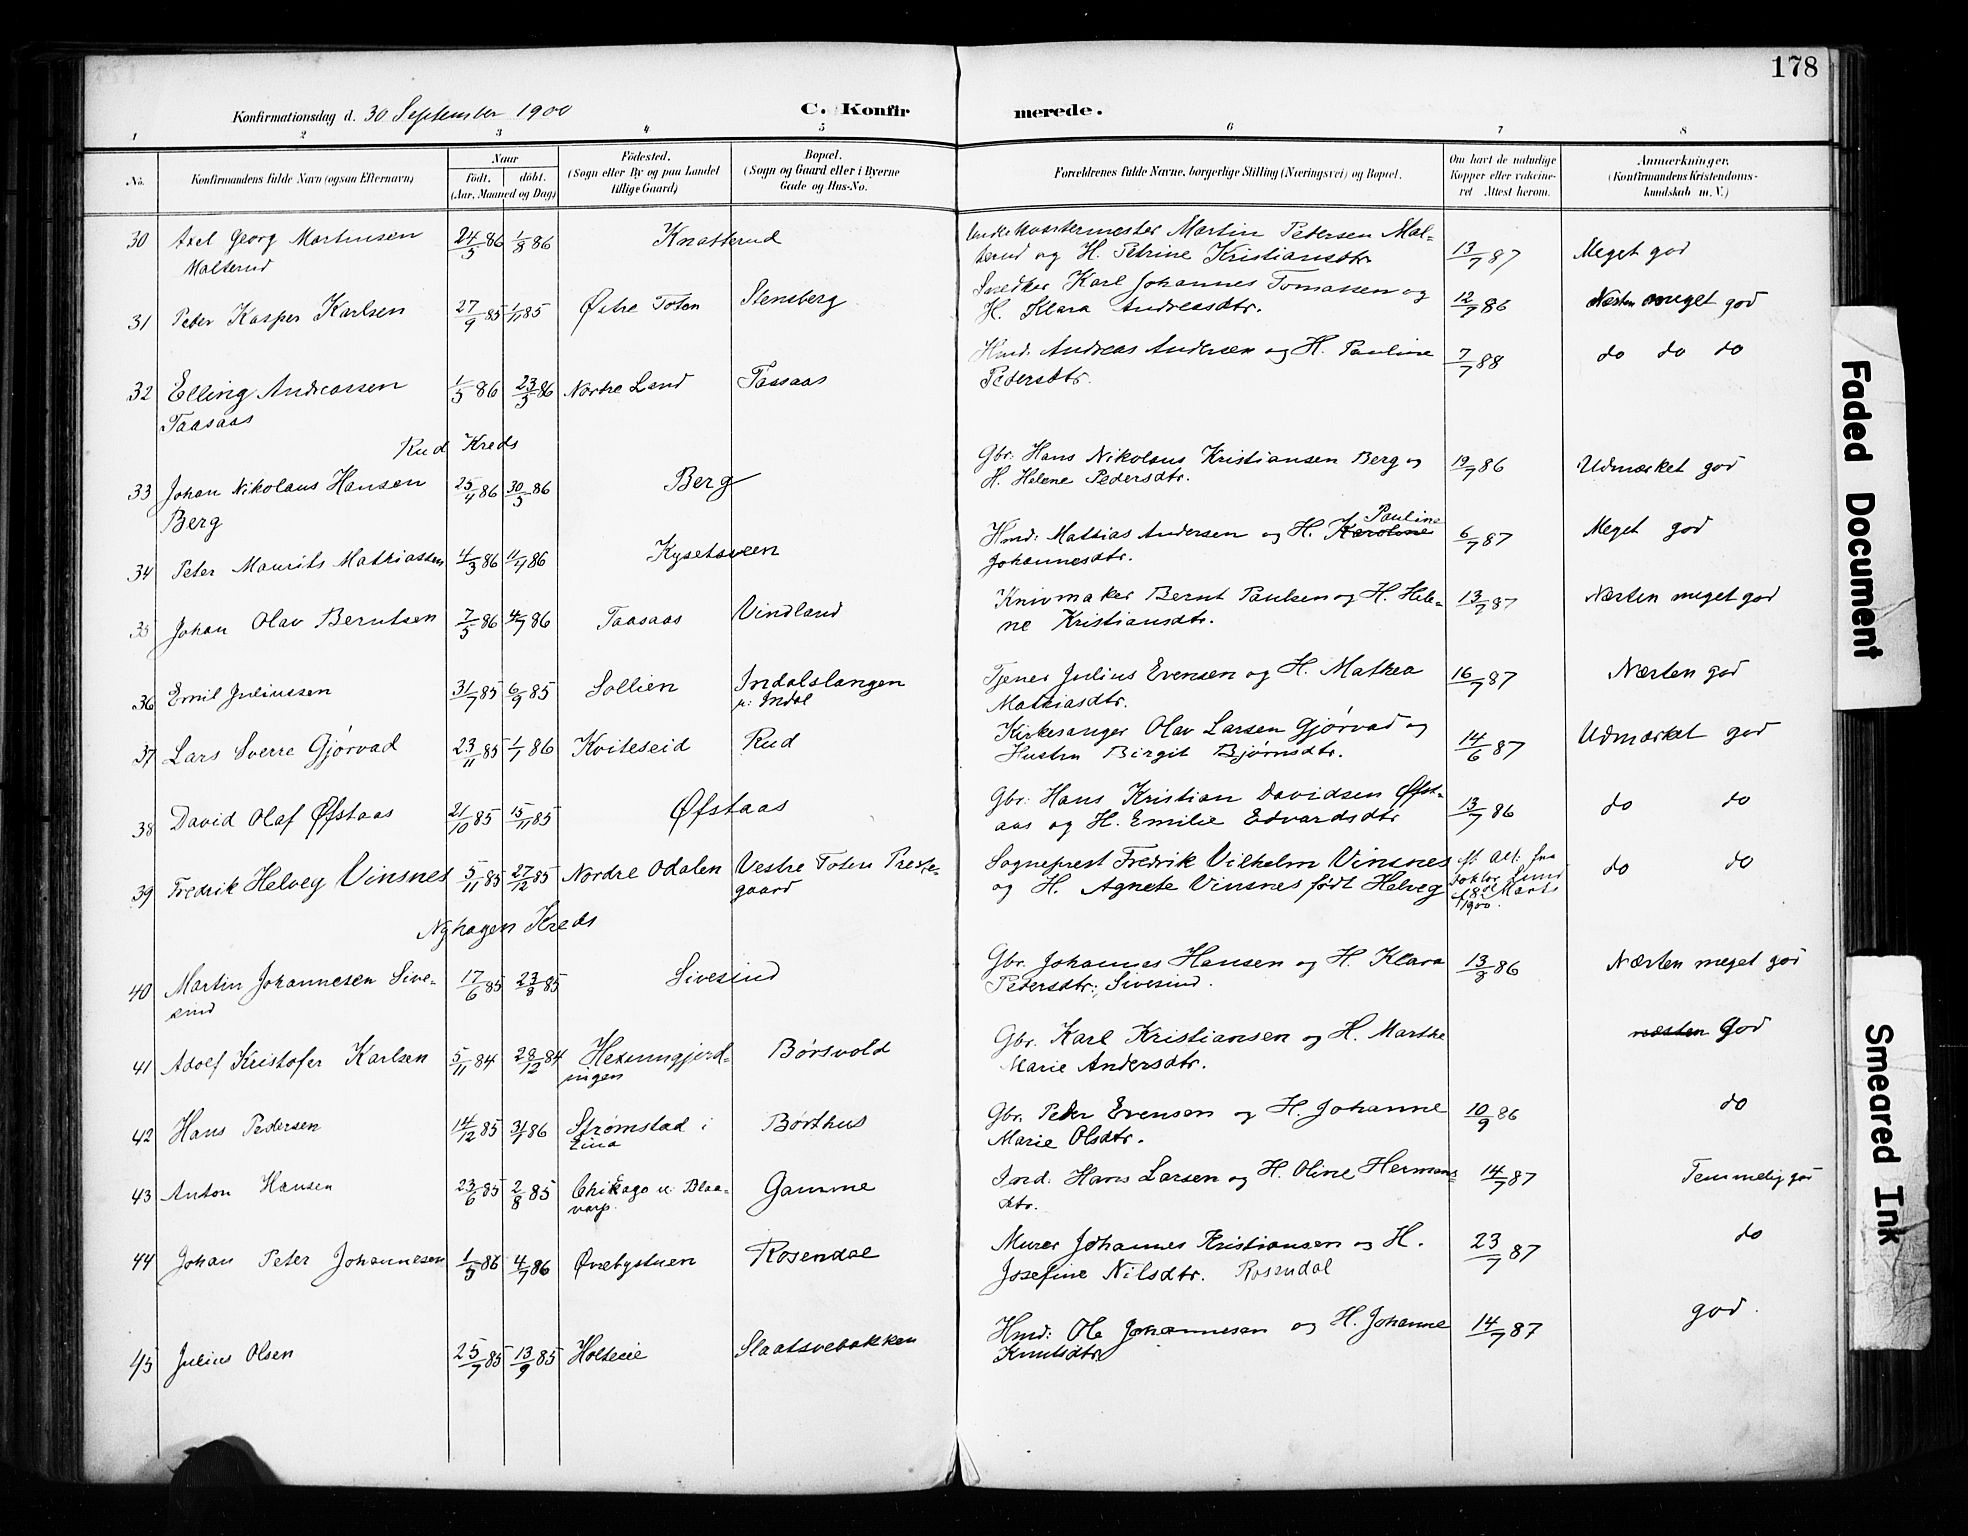 178
Konfirmationsdag d. 30 September 1900
C. Konfirmerede.
1 2 3 4 5 6 7 8
No.
Konfirmandens fulde Navn (ogsaa Efternavn)
Naar
Födt. döbt.
(Aar, Maaned og Dag)
Födested.
(Sogn eller By og paa Landet
tillige Gaard)
Bopæl.
(Sogn og Gaard eller i Byerne
Gade og Hus-No.
Forældrenes fulde Navne, borgerlige Stilling (Næringsvei) og Bopæl.
Om havt de naturlige
Kopper eller vaccine-
ret Attest herom.
Anmærkninger.
(Konfirmandens Kristendoms-
kundskab m. V.)
30 Axel Georg Martinsen 24/5 86 1/8 86 Knatterud Martin Petersen Mal- 13/7 87 Meget god
Malterud terud og H. Petrine Kristiansdtr
31 Peter Kasper Karlsen 27/9 85 1/11 85 Østre Toten Stensberg Snedker Karl Johannes Tomassen og 12/7 86 Næsten meget god
H. Klara Andreasdtr.
32 Elling Andreassen 1/5 86 23/5 86 Nordre Land Taasaas Hmd. Andreas Andersen og H. Pauline 7/7 88 do do do
Taasaas Pedersdtr.
Rud Kreds
33 Johan Nikolaus Hansen 25/4 86 30/5 86 Berg Gbr. Hans Nikolaus Kristiansen Berg og 19/7 86 Udmærket god
Berg H. Helene Pedersdtr.
34 Peter Maurits Mathiassen 4/3 86 11/7 86 Kysetsveen Hmd: Mathias Andersen og H. Karoline Pauline 6/7 87 Meget god
Johannesdtr.
35 Johan Olav Berntsen 7/5 86 4/7 86 Taasaas Vindland Knivmaker Bernt Paulsen og H. Hele- 13/7 87 Næsten meget god
ne Kristiansdtr.
36 Emil Juliussen 31/7 85 6/9 85 Sollien Indalslangen Tjener Julius Evensen og H. Mathea 16/7 87 Næsten god
u: Indal Mathiasdtr.
37 Lars Sverre Gjørvad 23/11 85 1/7 86 Kviteseid Rud Kirkesanger Olav Larsen Gjørvad og 14/6 87 Udmærket god
Hustru Birgit Bjørnsdtr.
38 David Olaf Øfstaas 21/10 85 15/11 85 Øfstaas Gbr: Hans Kristian Davidsen Øfst- 13/7 86 do do
aas og H. Emilie Edvardsdtr
39 Fredrik Helveg Vinsnes 5/11 85 27/12 85 Nordre Odalen Vestre Toten Preste- Sogneprest Fredrik Vilhelm Vinsnes fl. Att. fra do do
gaard og H. Agnete Vinsnes født Helveg Doktor Lund
Marts
1900.
Nyhagen Kreds
40 Martin Johannesen Sive- 17/6 85 23/8 85 Sivesind Gbr. Johannes Hansen og H. Klara 13/3 86 Næsten meget god
sind Pedersdtr., Sivesind.
41 Adolf Kristofer Karlsen 5/11 84 28/12 84 Børsvold Gbr. Karl Kristiansen og H. Marthe næsten god
ningen Marie Andersdtr.
42 Hans Pedersen 14/12 85 31/1 86 Strømstad i Børthus Gbr. Peder Evensen og H. Johanne 10/9 86 do
Eina Marie Olsdtr.
43 Anton Hansen 23/6 85 2/8 85 Chikago u. Blaa- Gamme Ind. Hans Larsen og H. Oline Hermans- 14/7 87 Temmelig god
varp. dtr.
44 Johan Peter Johannesen 1/5 86 4/7 86 Øvrebystuen Rosendal Murer Johannes Kristiansen og H. 23/7 87 do
Josefine Nilsdtr. Rosendal
45 Julius Olsen 25/7 85 13/9 85 Holteeie Slaatsvebakken Hmd: Ole Johannesen og H. Johanne 14/7 87 god.
Knutsdtr
Faded Document
Smeared Ink